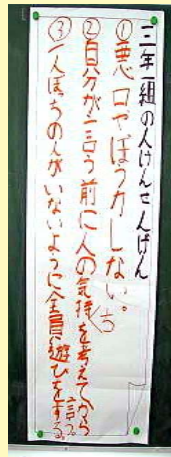 三年一組の人けんせんげん
①悪口やぼう力しない。
②自分が言う前に人の気持ちを考えてから言う。
③一人ぼっちの人がいないように全員遊びをする。